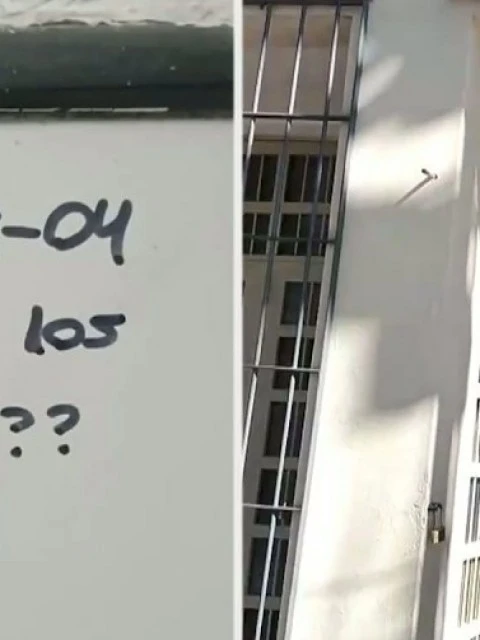 -04
los
??